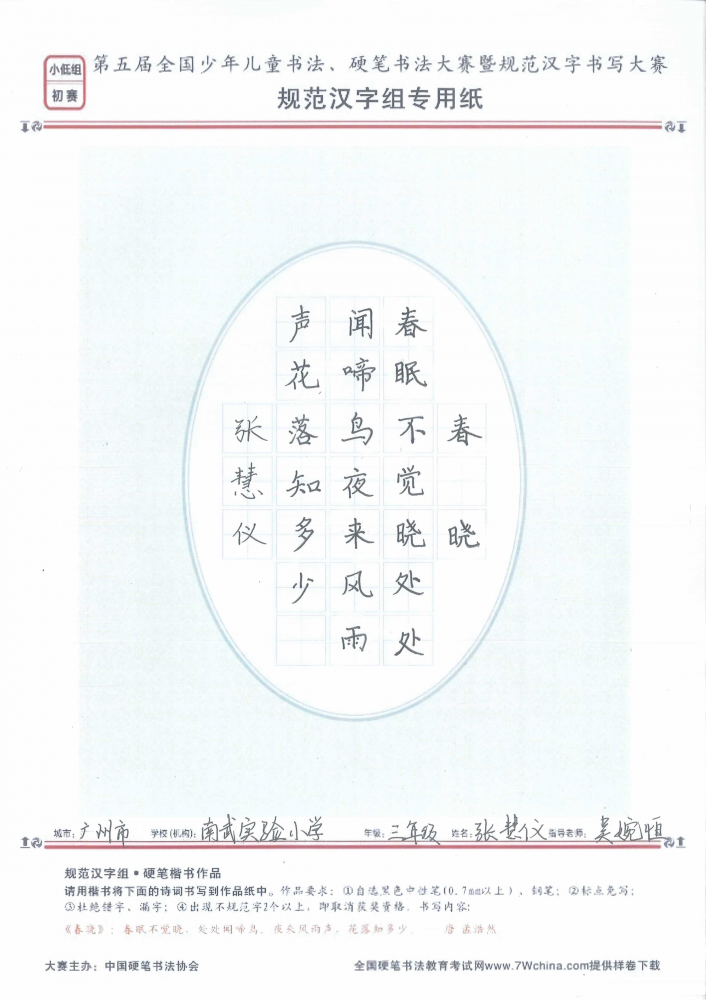 小低组
初赛
第五届全国少年儿童书法、硬笔书法大赛暨规范汉字书写大赛
规范汉字组专用纸
春晓
春眠不觉晓处处
闻啼鸟夜来风雨
声花落知多少
张慧仪
城市：广州市 学校(机构)：南武实验小学 年级：三年级 姓名：张慧仪 指导老师：吴婉恒
规范汉字组•硬笔楷书作品
请用楷书将下面的诗词书写到作品纸中。作品要求：①自选黑色中性笔(0.7mm以上)、钢笔；②标点免写；
③杜绝错字、漏字；④出现不规范字2个以上，即取消获奖资格。书写内容：
《春晓》：春眠不觉晓，处处闻啼鸟。夜来风雨声，花落知多少。——唐 孟浩然
大赛主办：中国硬笔书法协会 全国硬笔书法教育考试网www.7Wchina.com提供样卷下载